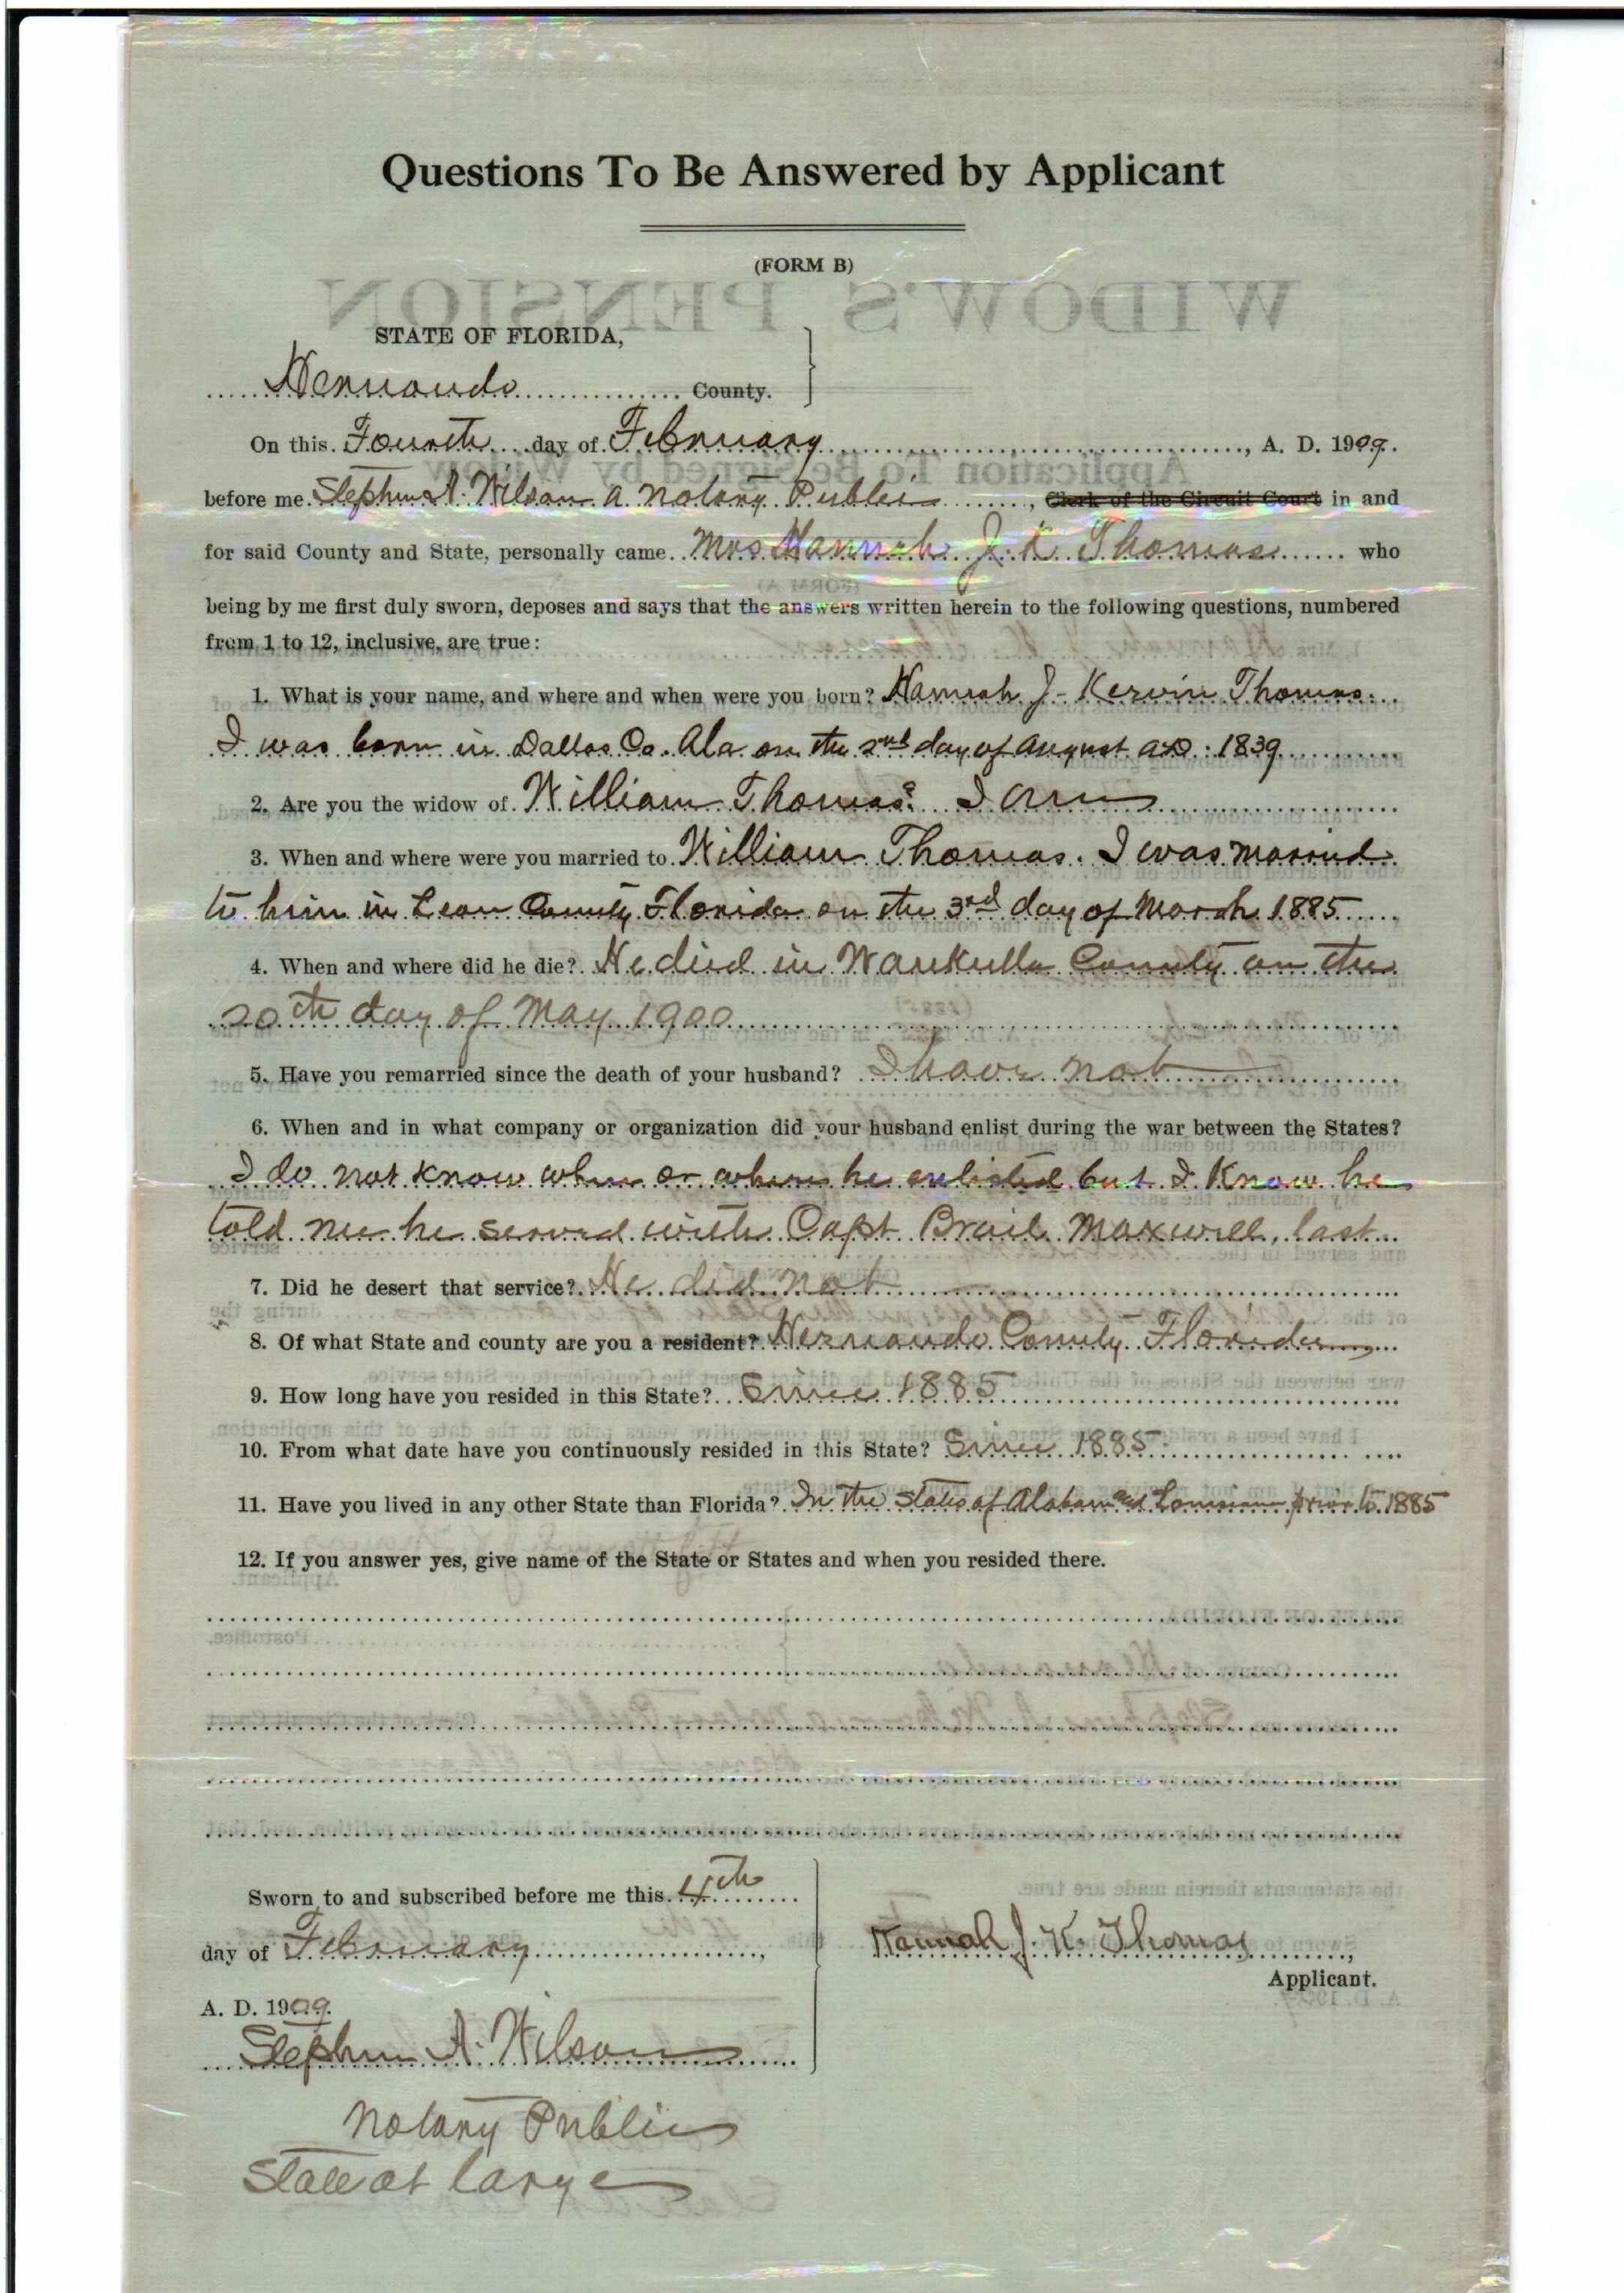 Questions To Be Answered by Applicant
(FORM B)
STATE OF FLORIDA,
Hernando County.
On this Fourth day of February, A. D. 1909.
before me Stephen A. Wilson a Notary Public, Clerk of the Circuit Court in and
for said County and State, personally came Mrs Hannah J. K. Thomas who
being by me first duly sworn, deposes and says that the answers written herein to the following questions, numbered
from 1 to 12, inclusive, are true:
1. What is your name, and where and when were you born? Hannah J. Kervin Thomas.
I was born in Dallas Co. Ala on the 2nd day of August AD. 1839
2. Are you the widow of William Thomas? I am
3. When and where were you married to William Thomas. I was married
to him in Leon County Florida on the 3rd day of March 1885
4. When and where did he die? He died in Waukulla County on the
20th day of May 1900
5. Have you remarried since the death of your husband? I have not
6. When and in what company or organization did your husband enlist during the war between the States?
I do not know when or where he enlisted but I know he
told me he served with Capt Maxwell, last
7. Did he desert that service? He did not
8. Of what State and county are you a resident? Hernando County Florida
9. How long have you resided in this State? Since 1885
10. From what date have you continuously resided in this State? Since 1885
11. Have you lived in any other State than Florida? In the States of Alabama and Louisiana prior to 1885
12. If you answer yes, give name of the State or States and when you resided there.
Sworn to and subscribed before me this 4th
day of February,
A. D. 1909.
Stephen A. Wilson
Notary Public
State at large
Hannah J. K. Thomas,
Applicant.